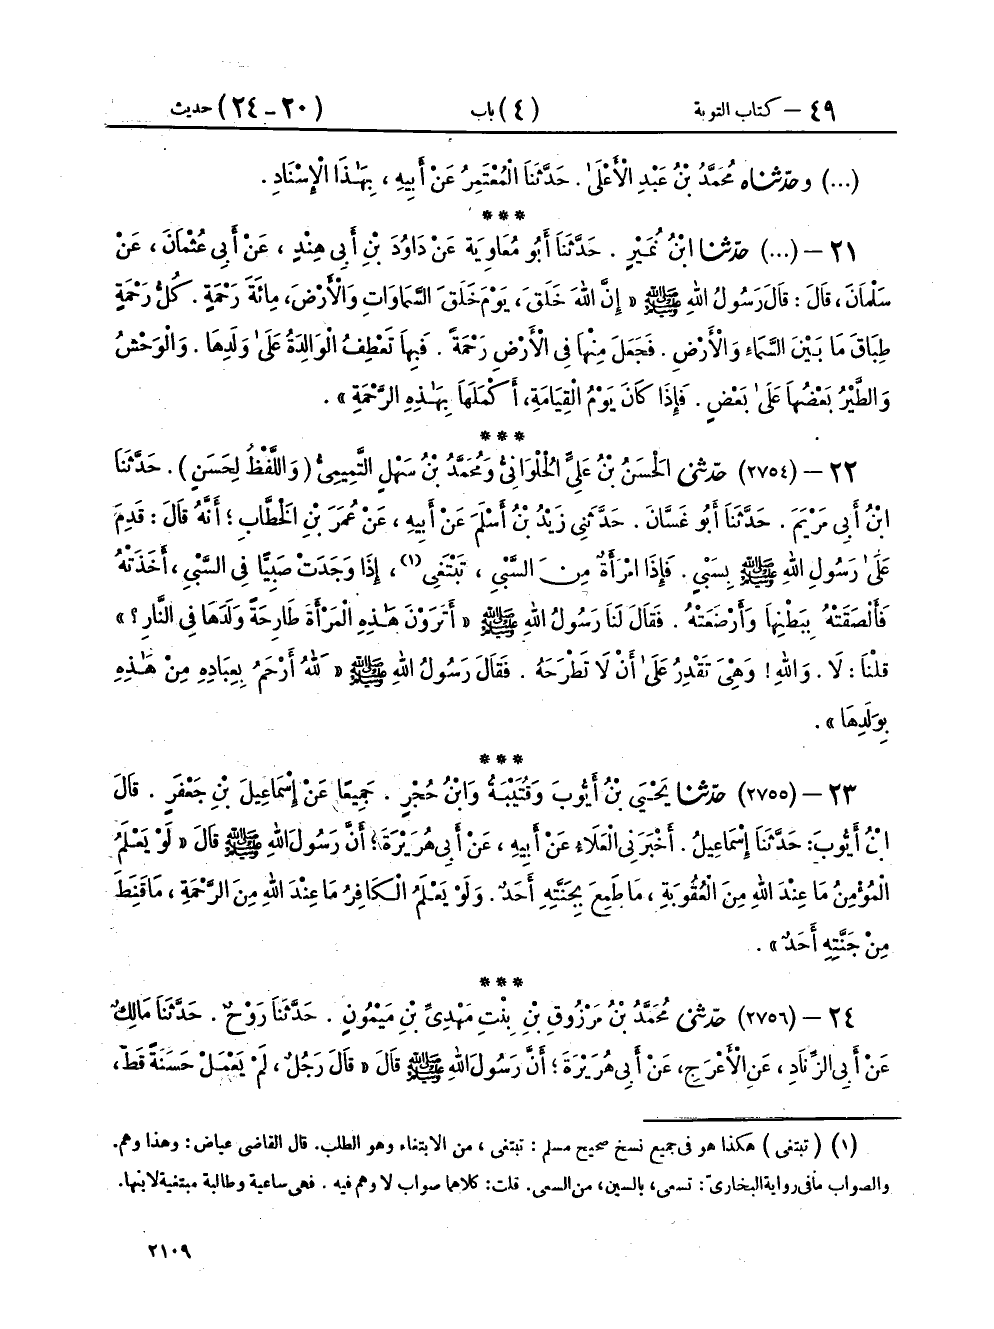 ٤٩ – كتاب التوبة (٤) باب (٢٠-٢٤) حديث
(...) وحدّثناه مُحَمَّدُ بْنُ عَبْدِ الْأَعْلَىٰ . حَدَّثَنَا الْمُعْتَمِرُ عَنْ أَبِيهِ ، بِهَـٰذَا الْإِسْنَادِ .
***
٢١ – (...) حدّثنا ابْنُ نُمَيْرٍ . حَدَّثَنَا أَبُو مُعَاوِيَةَ عَنْ دَاوُدَ بْنِ أَبِي هِنْدٍ ، عَنْ أَبِي عُثْمَانَ ، عَنْ
سَلْمَانَ ، قَالَ : قَالَ رَسُولُ اللهِ ﷺ « إِنَّ اللهَ خَلَقَ ، يَوْمَ خَلَقَ السَّمَاوَاتِ وَالْأَرْضَ، مِائَةَ رَحْمَةٍ . كُلُّ رَحْمَةٍ
طِبَاقَ مَا بَيْنَ السَّمَاءِ وَالْأَرْضِ . فَجَعَلَ مِنْهَا فِي الْأَرْضِ رَحْمَةً . فَبِهَا تَعْطِفُ الْوَالِدَةُ عَلَىٰ وَلَدِهَا . وَالْوَحْشُ
وَالطَّيْرُ بَعْضُهَا عَلَىٰ بَعْضٍ . فَإِذَا كَانَ يَوْمُ الْقِيَامَةِ، أَكْمَلَهَا بِهَـٰذِهِ الرَّحْمَةِ » .
***
٢٢ – (٢٧٥٤) حدّثنى الْحَسَنُ بْنُ عَلِيٍّ الْحُلْوَانِيُّ وَمُحَمَّدُ بْنُ سَهْلٍ التَّمِيمِيُّ ( وَاللَّفْظُ لِحَسَنٍ ) . حَدَّثَنَا
ابْنُ أَبِي مَرْيَمَ . حَدَّثَنَا أَبُو غَسَّانَ . حَدَّثَنِي زَيْدُ بْنُ أَسْلَمَ عَنْ أَبِيهِ ، عَنْ عُمَرَ بْنِ الْخَطَّابِ ؛ أَنَّهُ قَالَ : قَدِمَ
عَلَىٰ رَسُولِ اللهِ ﷺ بِسَبْيٍ . فَإِذَا امْرَأَةٌ مِنَ السَّبْيِ ، تَبْتَغِي(١) ، إِذَا وَجَدَتْ صَبِيًّا فِي السَّبْيِ ، أَخَذَتْهُ
فَأَلْصَقَتْهُ بِبَطْنِهَا وَأَرْضَعَتْهُ . فَقَالَ لَنَا رَسُولُ اللهِ ﷺ « أَتَرَوْنَ هَـٰذِهِ الْمَرْأَةَ طَارِحَةً وَلَدَهَا فِي النَّارِ ؟ »
قُلْنَا : لَا . وَاللهِ ! وَهِيَ تَقْدِرُ عَلَىٰ أَنْ لَا تَطْرَحَهُ . فَقَالَ رَسُولُ اللهِ ﷺ « لَلهُ أَرْحَمُ بِعِبَادِهِ مِنْ هَـٰذِهِ
بِوَلَدِهَا » .
***
٢٣ – (٢٧٥٥) حدّثنا يَحْيَىٰ بْنُ أَيُّوبَ وَقُتَيْبَةُ وَابْنُ حُجْرٍ . جَمِيعًا عَنْ إِسْمَاعِيلَ بْنِ جَعْفَرٍ . قَالَ
ابْنُ أَيُّوبَ: حَدَّثَنَا إِسْمَاعِيلُ . أَخْبَرَنِي الْعَلَاءُ عَنْ أَبِيهِ ، عَنْ أَبِي هُرَيْرَةَ ؛ أَنَّ رَسُولَ اللهِ ﷺ قَالَ « لَوْ يَعْلَمُ
الْمُؤْمِنُ مَا عِنْدَ اللهِ مِنَ الْعُقُوبَةِ ، مَا طَمِعَ بِجَنَّتِهِ أَحَدٌ . وَلَوْ يَعْلَمُ الْكَافِرُ مَا عِنْدَ اللهِ مِنَ الرَّحْمَةِ ، مَا قَنِطَ
مِنْ جَنَّتِهِ أَحَدٌ » .
***
٢٤ – (٢٧٥٦) حدّثنى مُحَمَّدُ بْنُ مَرْزُوقِ بْنِ بِنْتِ مَهْدِيِّ بْنِ مَيْمُونٍ . حَدَّثَنَا رَوْحٌ . حَدَّثَنَا مَالِكٌ
عَنْ أَبِي الزِّنَادِ ، عَنِ الْأَعْرَجِ، عَنْ أَبِي هُرَيْرَةَ ؛ أَنَّ رَسُولَ اللهِ ﷺ قَالَ « قَالَ رَجُلٌ ، لَمْ يَعْمَلْ حَسَنَةً قَطُّ،
(١) ( تبتغى ) هكذا هو فى جميع نسخ صحيح مسلم : تبتغى ، من الابتغاء وهو الطلب. قال القاضى عياض : وهذا وهم.
والصواب ما فى رواية البخارىّ : تسعى، بالسين، من السعى. قلت: كلاهما صواب لا وهم فيه . فهى ساعية وطالبة مبتغية لابنها.
٢١٠٩